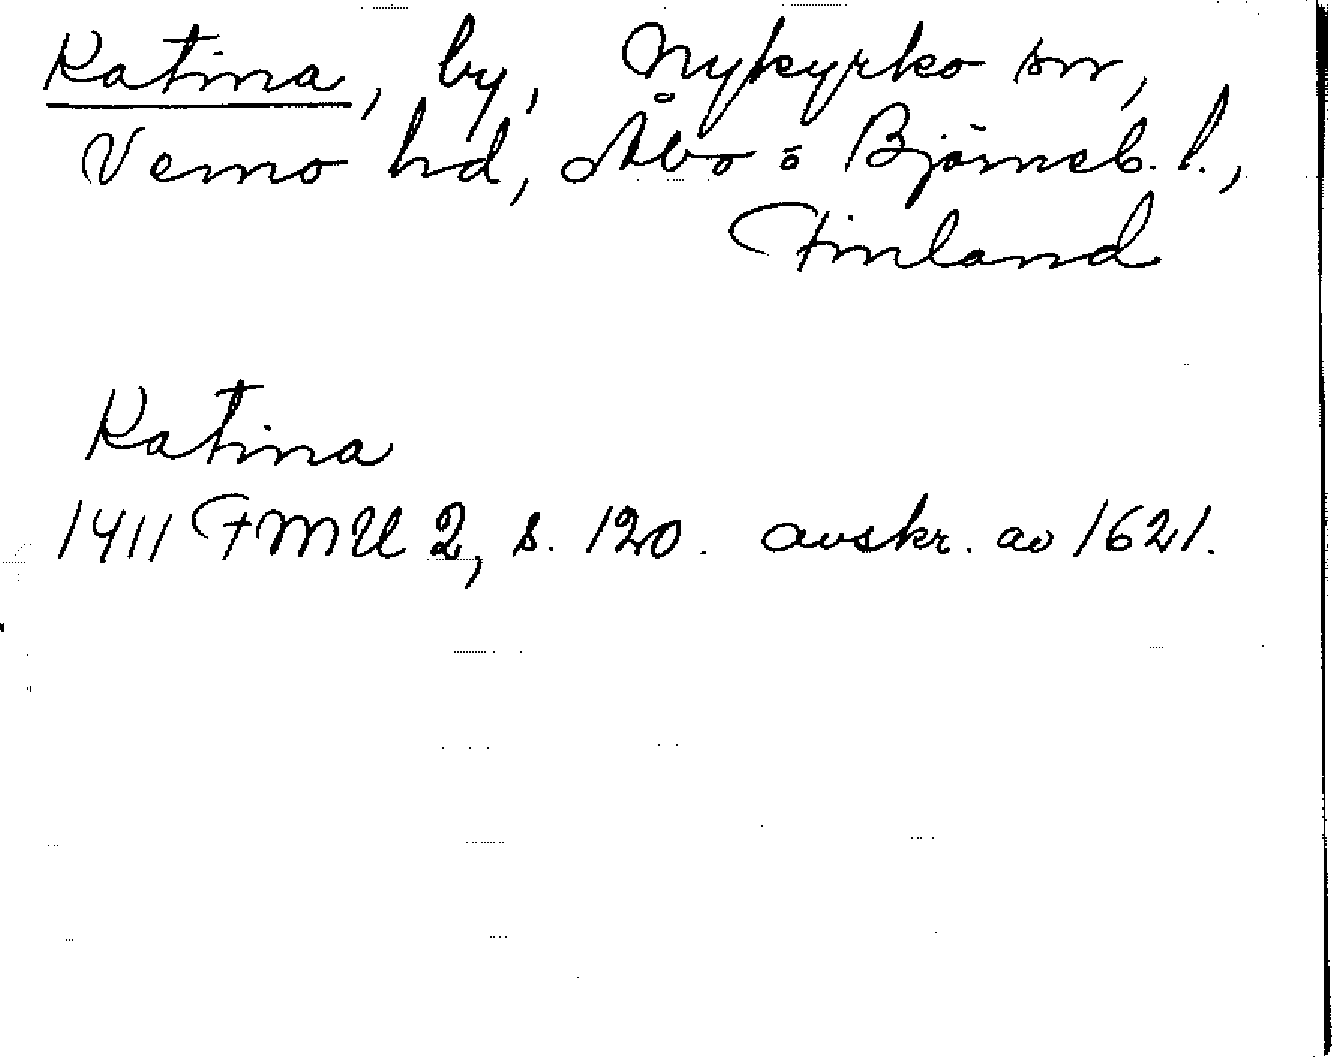 Katina, by, Nykyrko sn,
Vemo hd, Åbo o Björneb. l.,
Finland
Katina
1411 FMU 2, s. 120. avskr. av 1621.